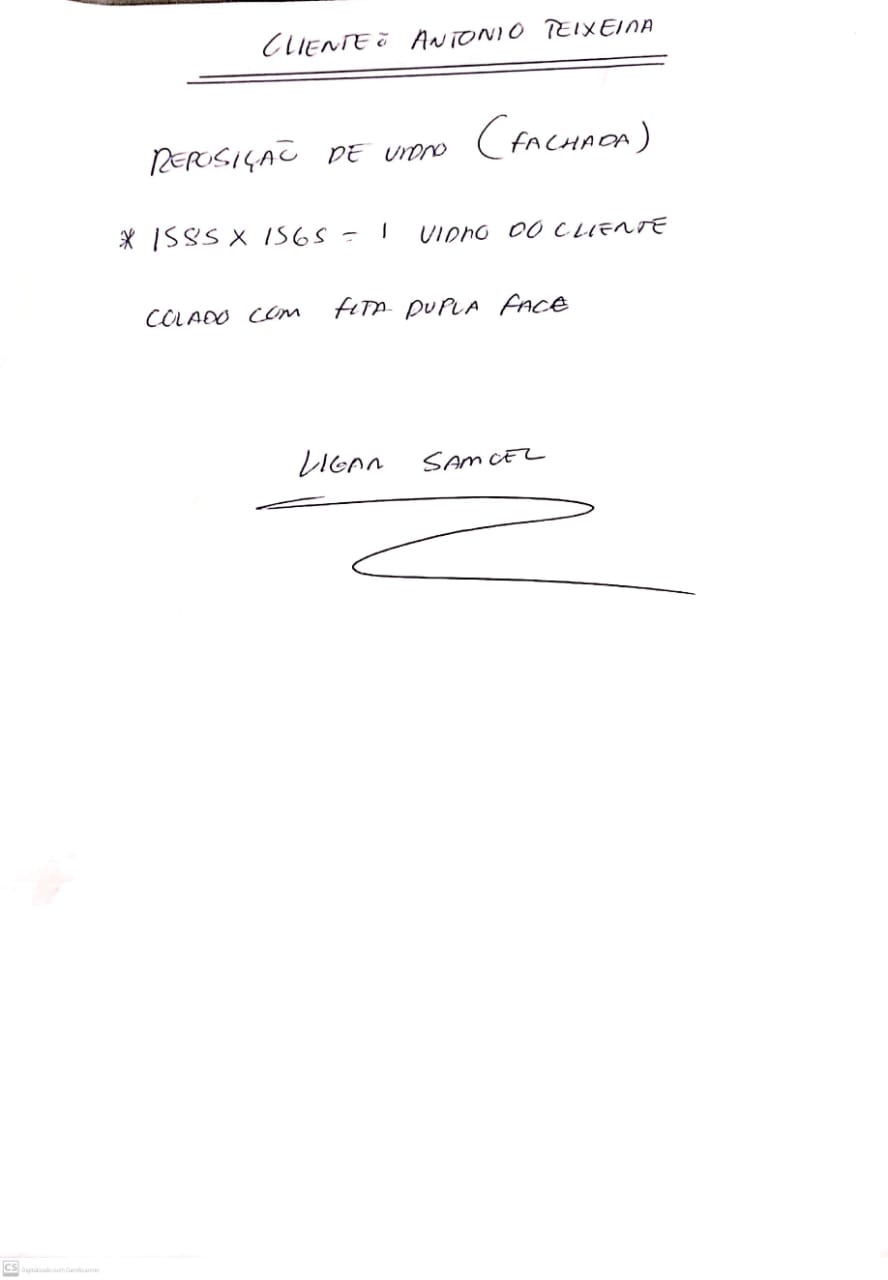 CLIENTE: ANTONIO TEIXEIRA
REPOSIÇÃO DE VIDRO (FACHADA)
* 1585 X 1565 = 1 VIDRO DO CLIENTE
COLADO COM FITA DUPLA FACE
LIGAR SAMUEL
CS Digitalizado com CamScanner